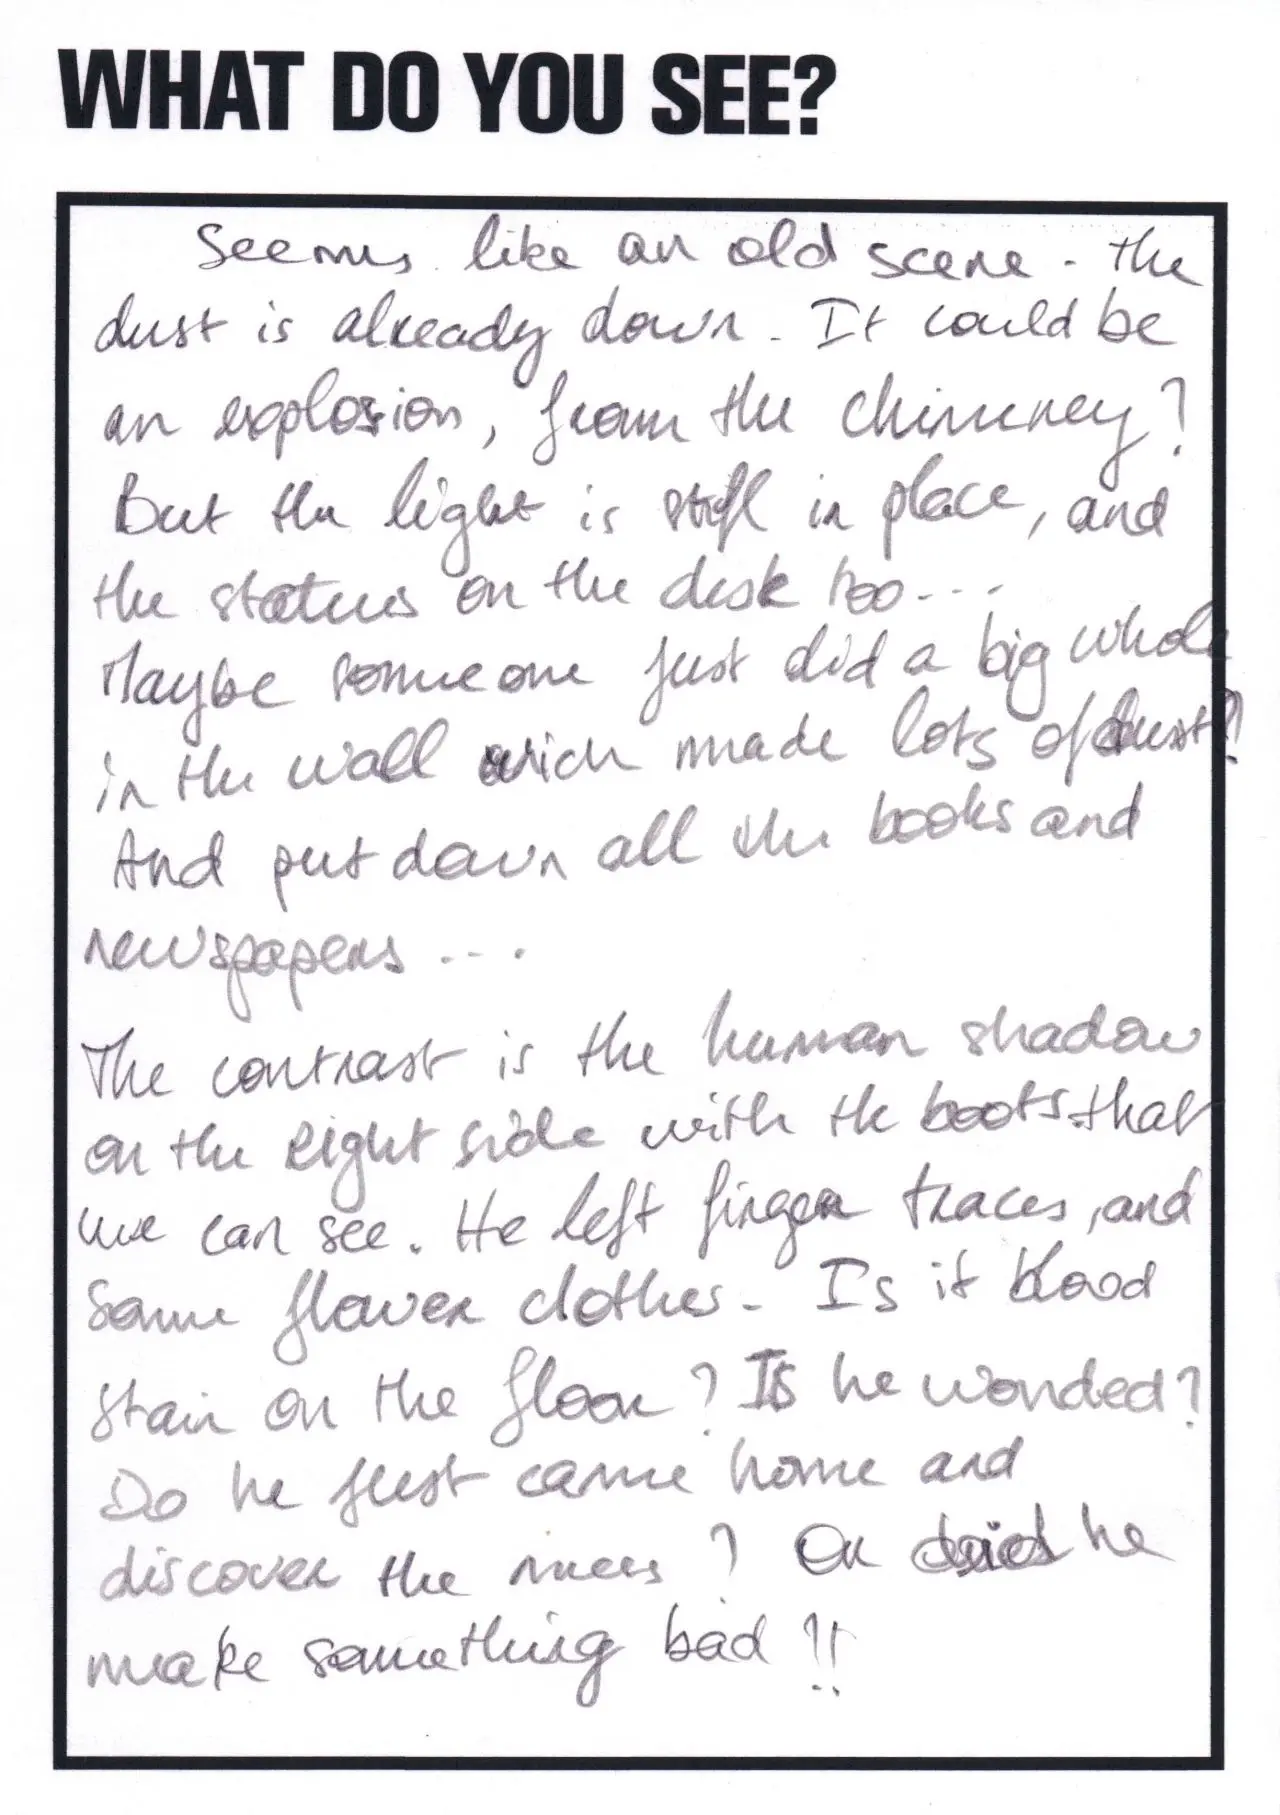 WHAT DO YOU SEE?
Seems like an old scene. The
dust is already down. It could be
an explosion, from the chimney?
But the light is still in place, and
the statues on the desk too...
Maybe someone just did a big whole
in the wall wich made lots of dust?
And put down all the books and
newspapers...
The contrast is the human shadow
on the right side with the boots that
we can see. He left finger traces, and
some flower clothes. Is it blood
stain on the floor? Is he wonded?
Do he just came home and
discover the mees? Or did he
make something bad!!